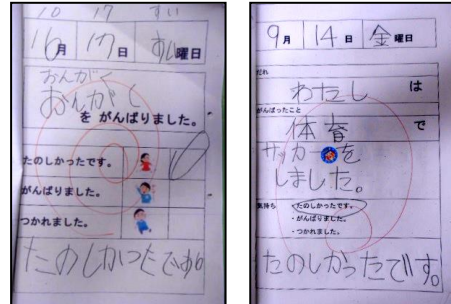 10 17 すい
10月 17日 すい曜日
おんがく
おんがく
を がんばりました。
たのしかったです。
がんばりました。
つかれました。
たのしかったです。
9月 14日 金曜日
だれ
わたし は
がんばったこと
体育 で
サッカーを
しました。
気持ち
・たのしかったです。
・がんばりました。
・つかれました。
たのしかったです。